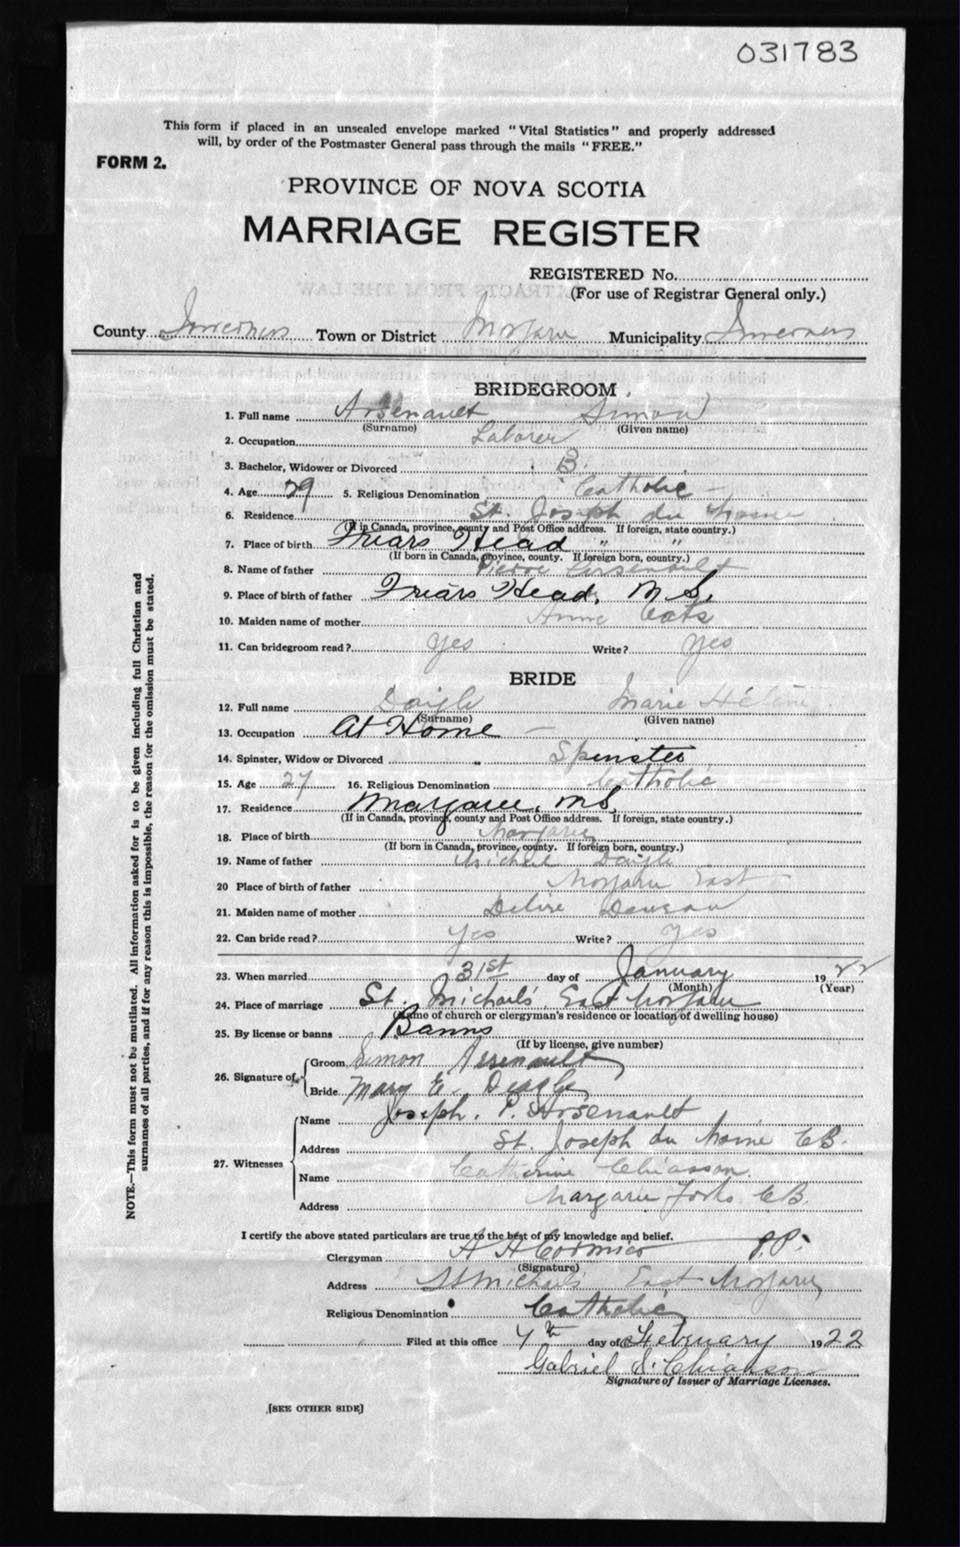 031783
This form if placed in an unsealed envelope marked "Vital Statistics" and properly addressed
will, by order of the Postmaster General pass through the mails "FREE."
FORM 2.
PROVINCE OF NOVA SCOTIA
MARRIAGE REGISTER
REGISTERED No.
(For use of Registrar General only.)
County Inverness Town or District Margaree Municipality Inverness
BRIDEGROOM.
1. Full name Arsenault Simon
(Surname) (Given name)
2. Occupation Laborer
3. Bachelor, Widower or Divorced B.
4. Age 29 5. Religious Denomination Catholic
6. Residence St. Joseph du Moine
(If in Canada, province, county and Post Office address. If foreign, state country.)
7. Place of birth Friars Head " "
(If born in Canada, province, county. If foreign born, country.)
8. Name of father Pierre Arsenault
9. Place of birth of father Friars Head, N.S.
10. Maiden name of mother Anne
11. Can bridegroom read? Yes Write? Yes
BRIDE
12. Full name Daigle Marie Hélène
(Surname) (Given name)
13. Occupation At Home —
14. Spinster, Widow or Divorced Spinster
15. Age 27 16. Religious Denomination Catholic
17. Residence Margaree, N.S.
(If in Canada, province, county and Post Office address. If foreign, state country.)
18. Place of birth Margaree
(If born in Canada, province, county. If foreign born, country.)
19. Name of father Daigle
20 Place of birth of father Margaree East
21. Maiden name of mother
22. Can bride read? Yes Write? Yes
23. When married 31st day of January 1922
(Month) (Year)
24. Place of marriage St. Michaels East Margaree
(Name of church or clergyman's residence or location of dwelling house)
25. By license or banns Banns
(If by license, give number)
26. Signature of Groom Simon Arsenault
Bride Mary E. Deagle
27. Witnesses Name Joseph. P. Arsenault
Address St. Joseph du Moine C.B.
Name Catherine Chiasson.
Address Margaree Forks C.B.
I certify the above stated particulars are true to the best of my knowledge and belief.
Clergyman A H Cormier P.P.
(Signature)
Address St Michaels East Margaree
Religious Denomination Catholic
Filed at this office 7th day of February 1922
Gabriel S. Chiasson
Signature of Issuer of Marriage Licenses.
[SEE OTHER SIDE]
NOTE.—This form must not be mutilated. All information asked for is to be given including full Christian and
surnames of all parties, and if for any reason this is impossible, the reason for the omission must be stated.